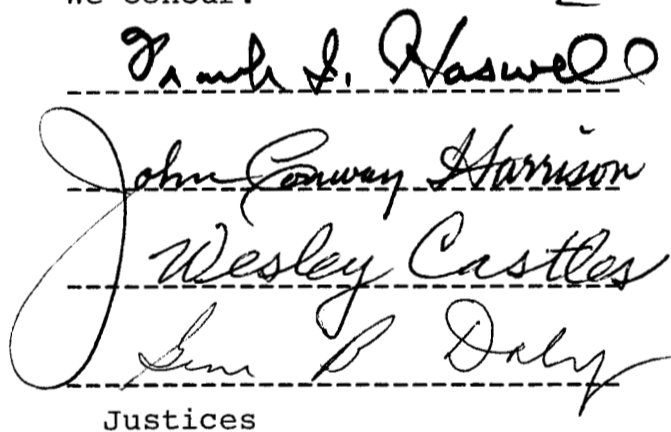 We concur:
Frank I. Haswell
John Conway Harrison
Wesley Castles
Gene B Daly
Justices